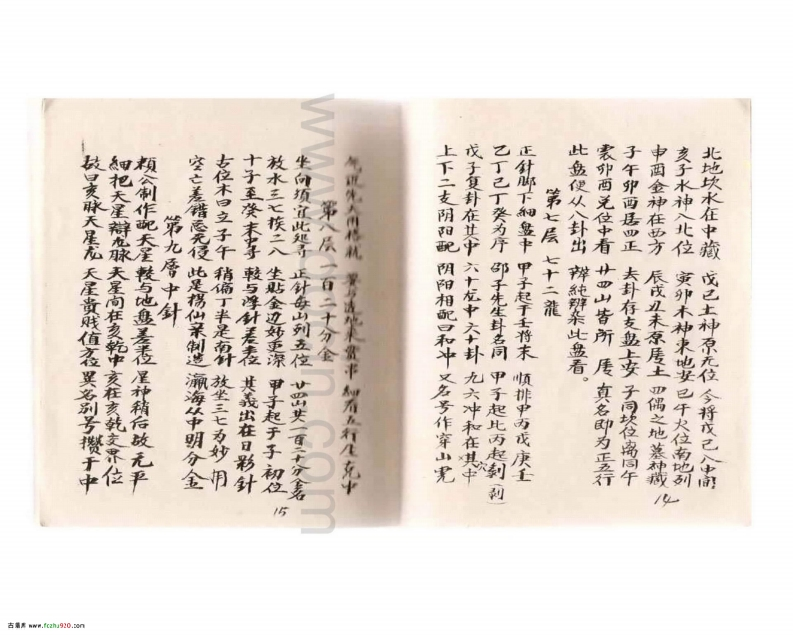 北地坎水在中藏 戊己土神原无位 今将戊己入中宫
亥子水神八北位 寅卯木神东地安 巳午火位南地列
申酉金神在西方 辰戌丑未原属土 四偶之地墓神藏
子午卯酉居四正 去卦存支盘上安 子同坎位离同午
震卯酉兑位中看 廿四山皆所属 真名即为正五行
此盘便从八卦出 辨純辨杂此盘看。
第七层 七十二龍
正針脚下細盘中 甲子起于壬将末 順排甲丙戊庚壬
乙丁己丁癸为序 邵子先生卦名同 甲子起比丙起剝(剥)
戊子复卦在其中 六十龙中六十卦 九六冲和在其中
上下二支阴阳配 阴阳相配曰和冲 又名号作穿山虎
14
細看五行生克中
第八层 一百二十分金
坐向須宜此処寻 正针每山列五位 廿四山共一百二十分金名
放水三七挨二八 坐貼金边妙更深 甲子起于子初位
十子至癸末中寻 較与浮針差叁位 其義出在日影針
古位木曰立子午 稍偏丁半是南針 放坐三七为妙用
空亡差錯忌无侵 此是楊仙亲制造 瀛海从中明分金
第九層中針
賴公制作配天星 較与地盘差半位 星神稍后故元平
細把天星辯九脉 天星向在亥乾中 亥在亥乾交界位
故曰亥脉天星龙 天星貴賎值方位 異名别号攒于中
15
www.com
古籍库 www.fczhu920.com